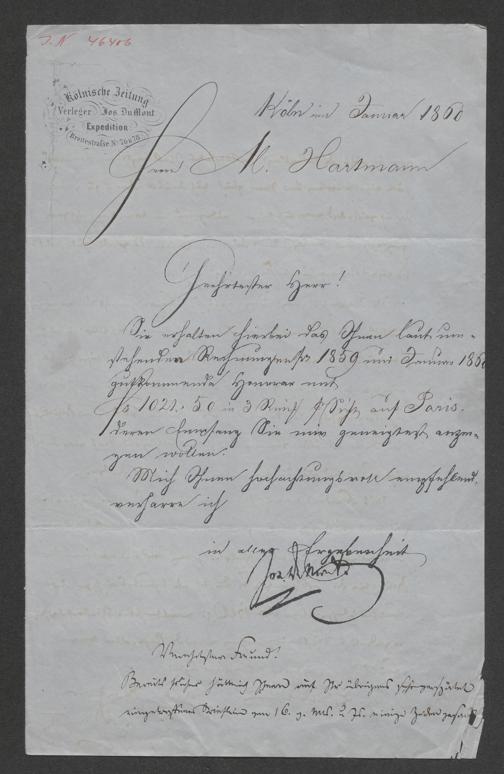 J.N 46406
Kölnische Zeitung
Verleger Jos DuMont
Expedition
Breitestraße No 76 & 78
Köln im Januar 1860
Herrn M. Hartmann
Geehrtester Herr!
Sie erhalten hierbei das Ihnen laut um-
stehenden Rechnungen 1859 und Januar 186
zukommende Honorar mit
fs 1021. 50 in 3 auf Paris.
deren Empfang Sie mir geneigtest anzei-
gen wollen.
Mich Ihnen hochachtungsvoll empfehlend,
verharre ich
in aller Ergebenheit
Jos. DuMont
Verehrtester Freund!
Bereits früher hätte ich Ihnen auf Ihr übrigens
16. v. Mts. einige Zeilen